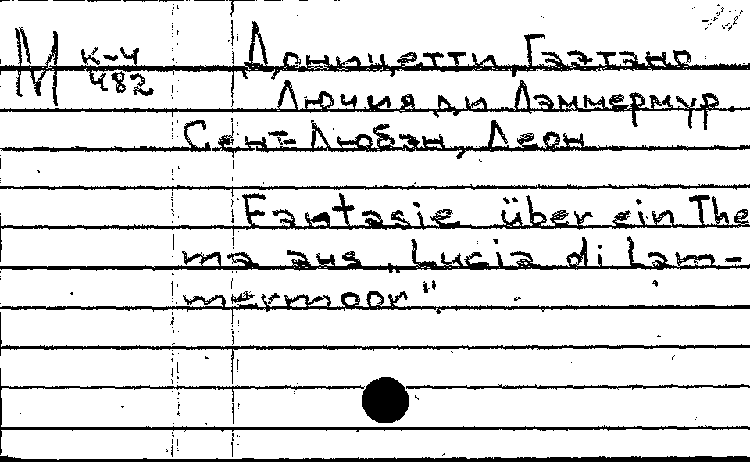 М к-4 Доницетти, Гаэтано
482
Лючия ди Лэммермур.
Сент-Любэн, Леон
Fantasie über ein The
ma aus „Lucia di Lam-
mermoor".